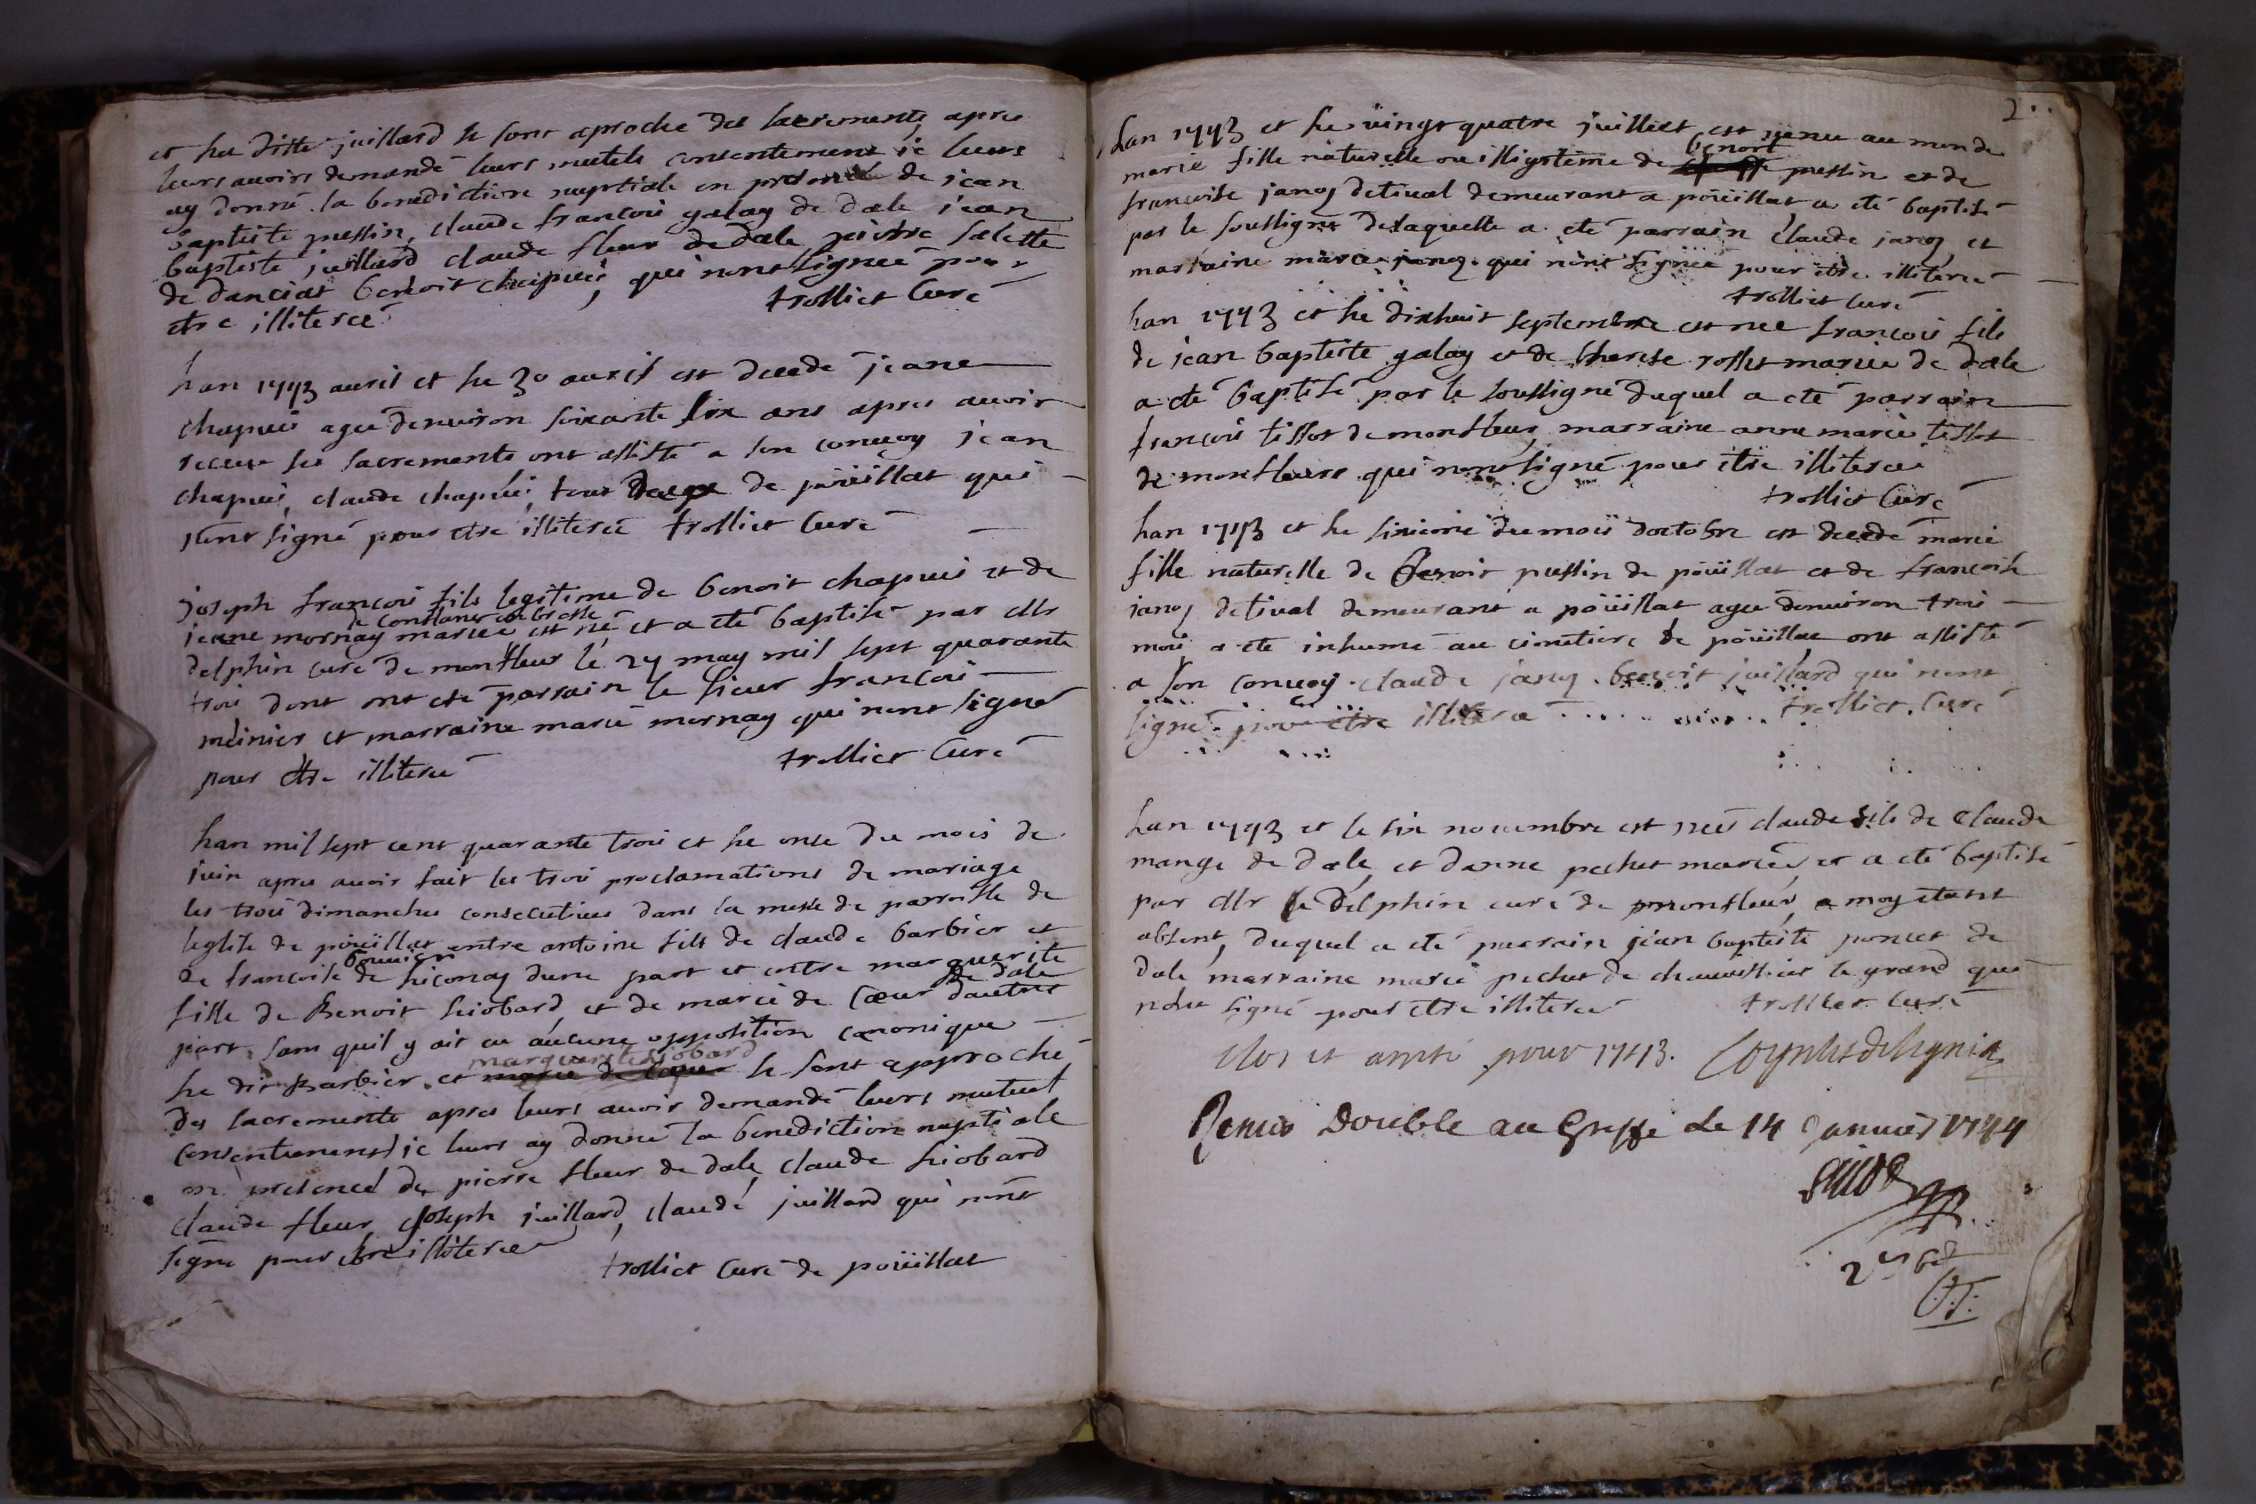 et la ditte juillard se sont aproche des sacrements apres
leurs avoirs demandé leurs mutels consentement je leurs
ay donné la benediction nuptiale en presence de jean
baptiste pussin, claude francois galay de dale jean
baptiste juillard claude fleur de dale pierre
de danciat benoit chapuis, qui nont signee pour
etre illiteree trolliet Curé
lan 1743 avril et le 30 avril est decede jeane
chapuis agee denviron soixante six ans apres avoir
receue les sacrements ont assisté a son convoy jean
chapuis, claude chapuis, tous de poüillat qui
nont signé pour etre illiteree trolliet Curé
joseph francois fils legitime de benoit chapuis et de
de Constance
jeane mornay mariee est né et a eté baptisé par Mr
delphin curé de monfleur le 27 may mil sept quarante
trois dont ont eté parrain le sieur francois
meinier et marraine marie mornay qui nont signé
pour etre illiteree trolliet Curé
lan mil sept cent quarante trois et le onse du mois de
juin apres avoir fait les trois proclamations de mariage
les trois dimanches consecutives dans la messe de parroisse de
leglise de poüillat entre antoine fils de claude barbier et
bouvier
de francoise de siconay dune part et entre marguerite
de dale
fille de Benoit siobard et de marie de Cœur dautre
part sans quil y ait eu aucune opposition canonique
marguerite siobard
le dit Barbier et marie de Cœur se sont approché
des sacrements apres leurs avoir demandé leurs mutuel
consentement je leurs ay donné la benediction nuptiale
en presence de pierre fleur de dale claude siobard
claude fleur, joseph juillard, claude juillard qui nont
signé pour etre illiteree
trolliet Curé de poüillat
2
Lan 1743 et le vingt quatre juilliet est venu au monde
benoit
marie fille naturelle ou illigitime de pussin et de
francoise janoy detival demeurant a poüillat a eté baptisé
par le soussigné delaquelle a eté parrain claude janoy et
marraine marie janoy qui nont signée pour etre illiteree
trolliet Curé
lan 1743 et le dixhuit septembre est nee francois fils
de jean baptiste galay et de therese rosset mariee de dale
a eté baptisé par le soussigné duquel a eté parrain
francois tissot de monfleur marraine anne marie tissot
de monfleur qui nont signé pour etre illiteree
trolliet Curé
lan 1743 et le sixieme du mois doctobre est decedé marie
fille naturelle de Benoit pussin de poüillat et de francoise
janoy detival demeurant a poüillat agee denviron trois
mois a eté inhumé au cimetiere de poüillat ont assisté
a son convoy claude janoy benoit juillard qui nont
signé pour etre illiteree trolliet Curé
Lan 1743 et le six novembre est neé claude fils de Claude
mange de dale et danne pechet mariée, et a eté baptisé
par Mr Delphin curé de monfleur, moy etant
absent, duquel a eté parrain jean baptiste poncet de
dale marraine marie pechet de chavussiat le grand qui
signé pour etre illiteree trolliet Curé
Clos et aresté pour 1743.
Remis Double au Greffe le 14 Janvier 1744